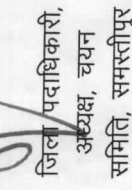 जिला पदाधिकारी,
अध्यक्ष, चयन
समिति, समस्तीपुर